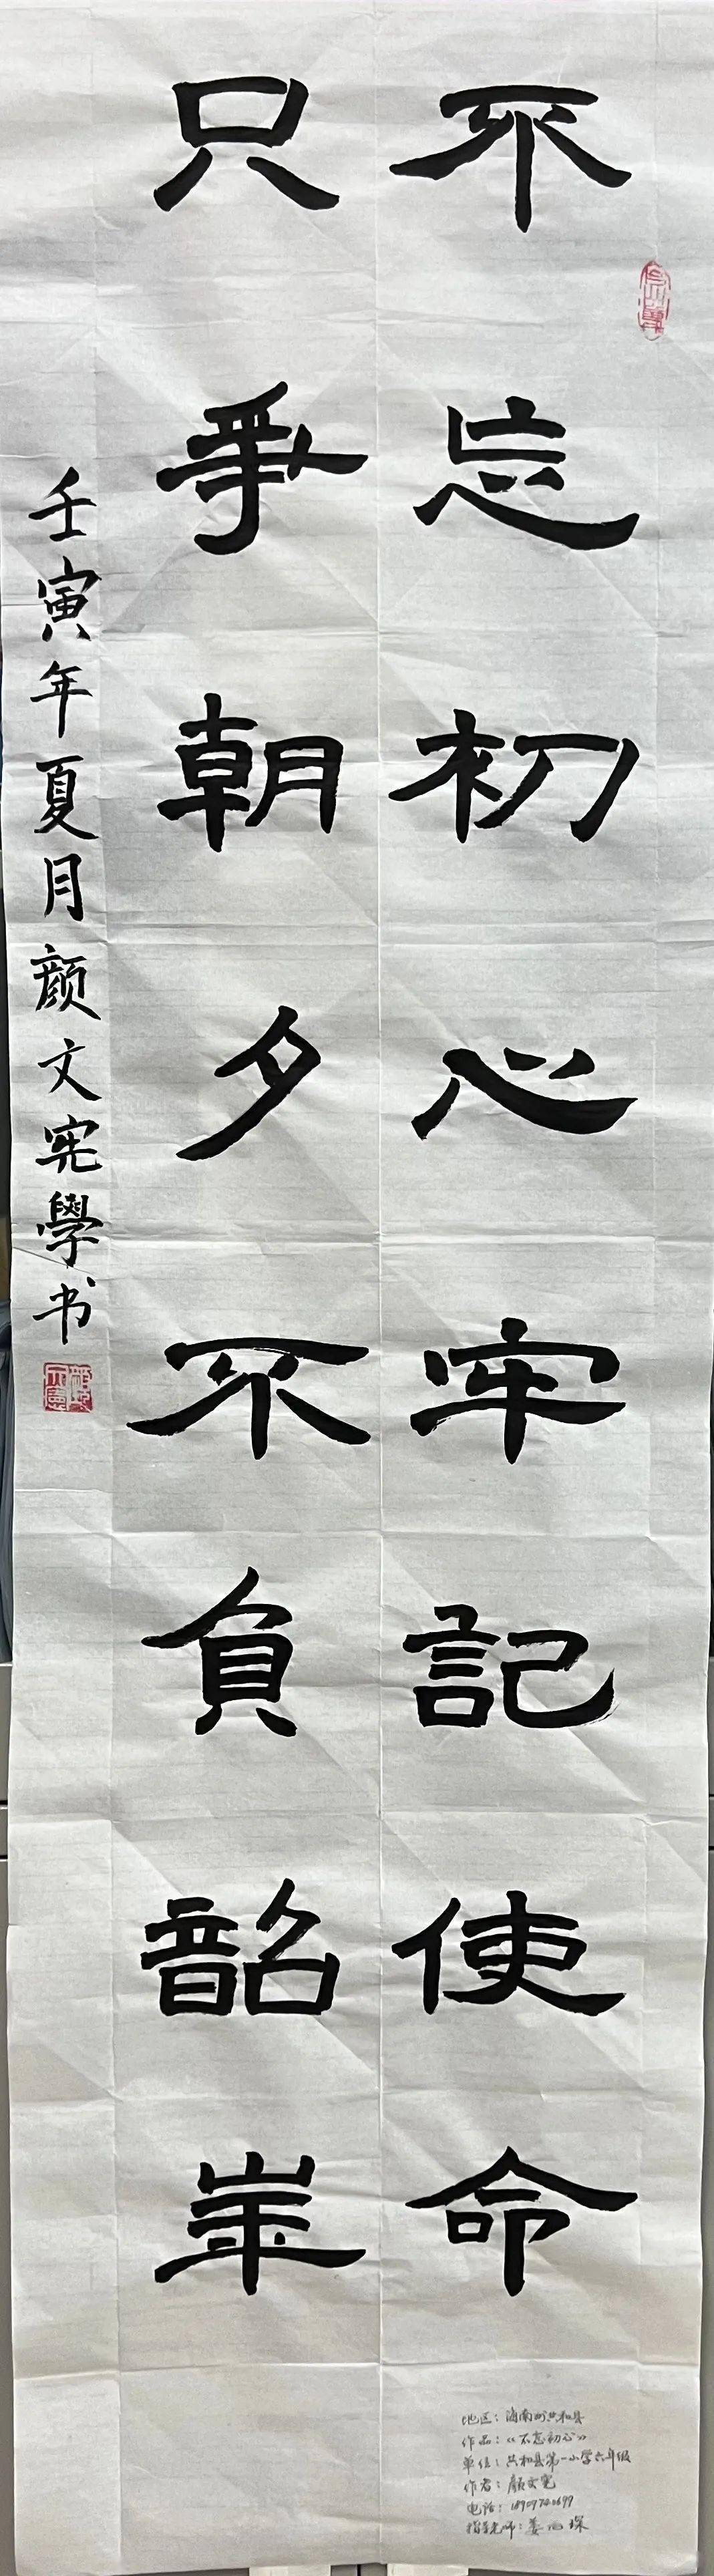 不忘初心牢記使命
只爭朝夕不負韶華
壬寅年夏月颜文宪學书
地区：海南州共和县
作品：《不忘初心》
单位：共和县第一小学六年级
作者：颜文宪
电话：
指导老师：姜